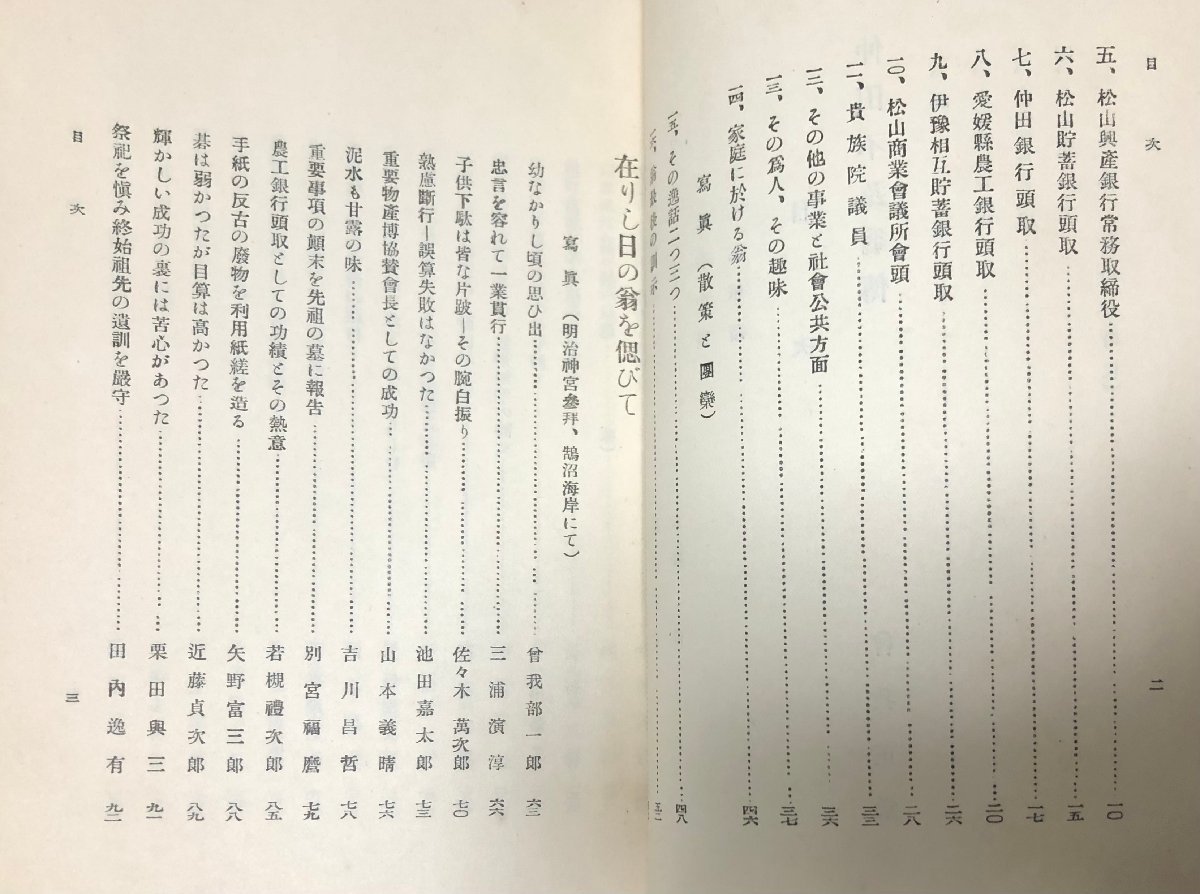 目次
五、松山興產銀行常務取締役……一〇
六、松山貯蓄銀行頭取……一五
七、仲田銀行頭取……一七
八、愛媛縣農工銀行頭取……二〇
九、伊豫相互貯蓄銀行頭取……二六
一〇、松山商業會議所會頭……二八
一一、貴族院議員……三三
一二、その他の事業と社會公共方面……三六
一三、その爲人、その趣味……三七
一四、家庭に於ける翁……四六
寫眞（散策と團欒）
一五、その逸話二つ三つ……四八
の訓……五二
二
在りし日の翁を偲びて
寫眞（明治神宮參拜、鵠沼海岸にて）
幼なかりし頃の思ひ出……曾我部一郎 六三
忠言を容れて一業貫行……三浦演淳 六六
子供下駄は皆な片跛―その腕白振り……佐々木萬次郎 七〇
熟慮斷行―誤算失敗はなかつた……池田嘉太郎 七三
重要物產博協贊會長としての成功……山本義晴 七六
泥水も甘露の味……吉川昌哲 七八
重要事項の顚末を先祖の墓に報告……別宮福麿 七九
農工銀行頭取としての功績とその熱意……若槻禮次郎 八五
手紙の反古の廢物を利用紙縒を造る……矢野富三郎 八八
碁は弱かつたが目算は高かつた……近藤貞次郎 八九
輝かしい成功の裏には苦心があつた……栗田與三 九一
祭祀を愼み終始祖先の遺訓を嚴守……田內逸有 九二
目次
三